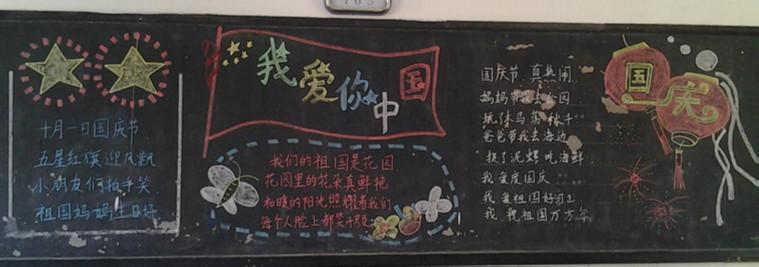 703
十月一日国庆节
五星红旗迎风飘
小朋友们拍手笑
祖国妈妈生日好
我爱你中国
我们的祖国是花园
花园里的花朵真鲜艳
和暖的阳光照耀着我们
每个人脸上都笑开颜
国庆节 真热闹
妈妈带我去公园
玩了木马荡秋千
爸爸带我去海边
挖了泥螺吃海鲜
我爱度国庆
我爱祖国好河山
我祝祖国万万年
国庆